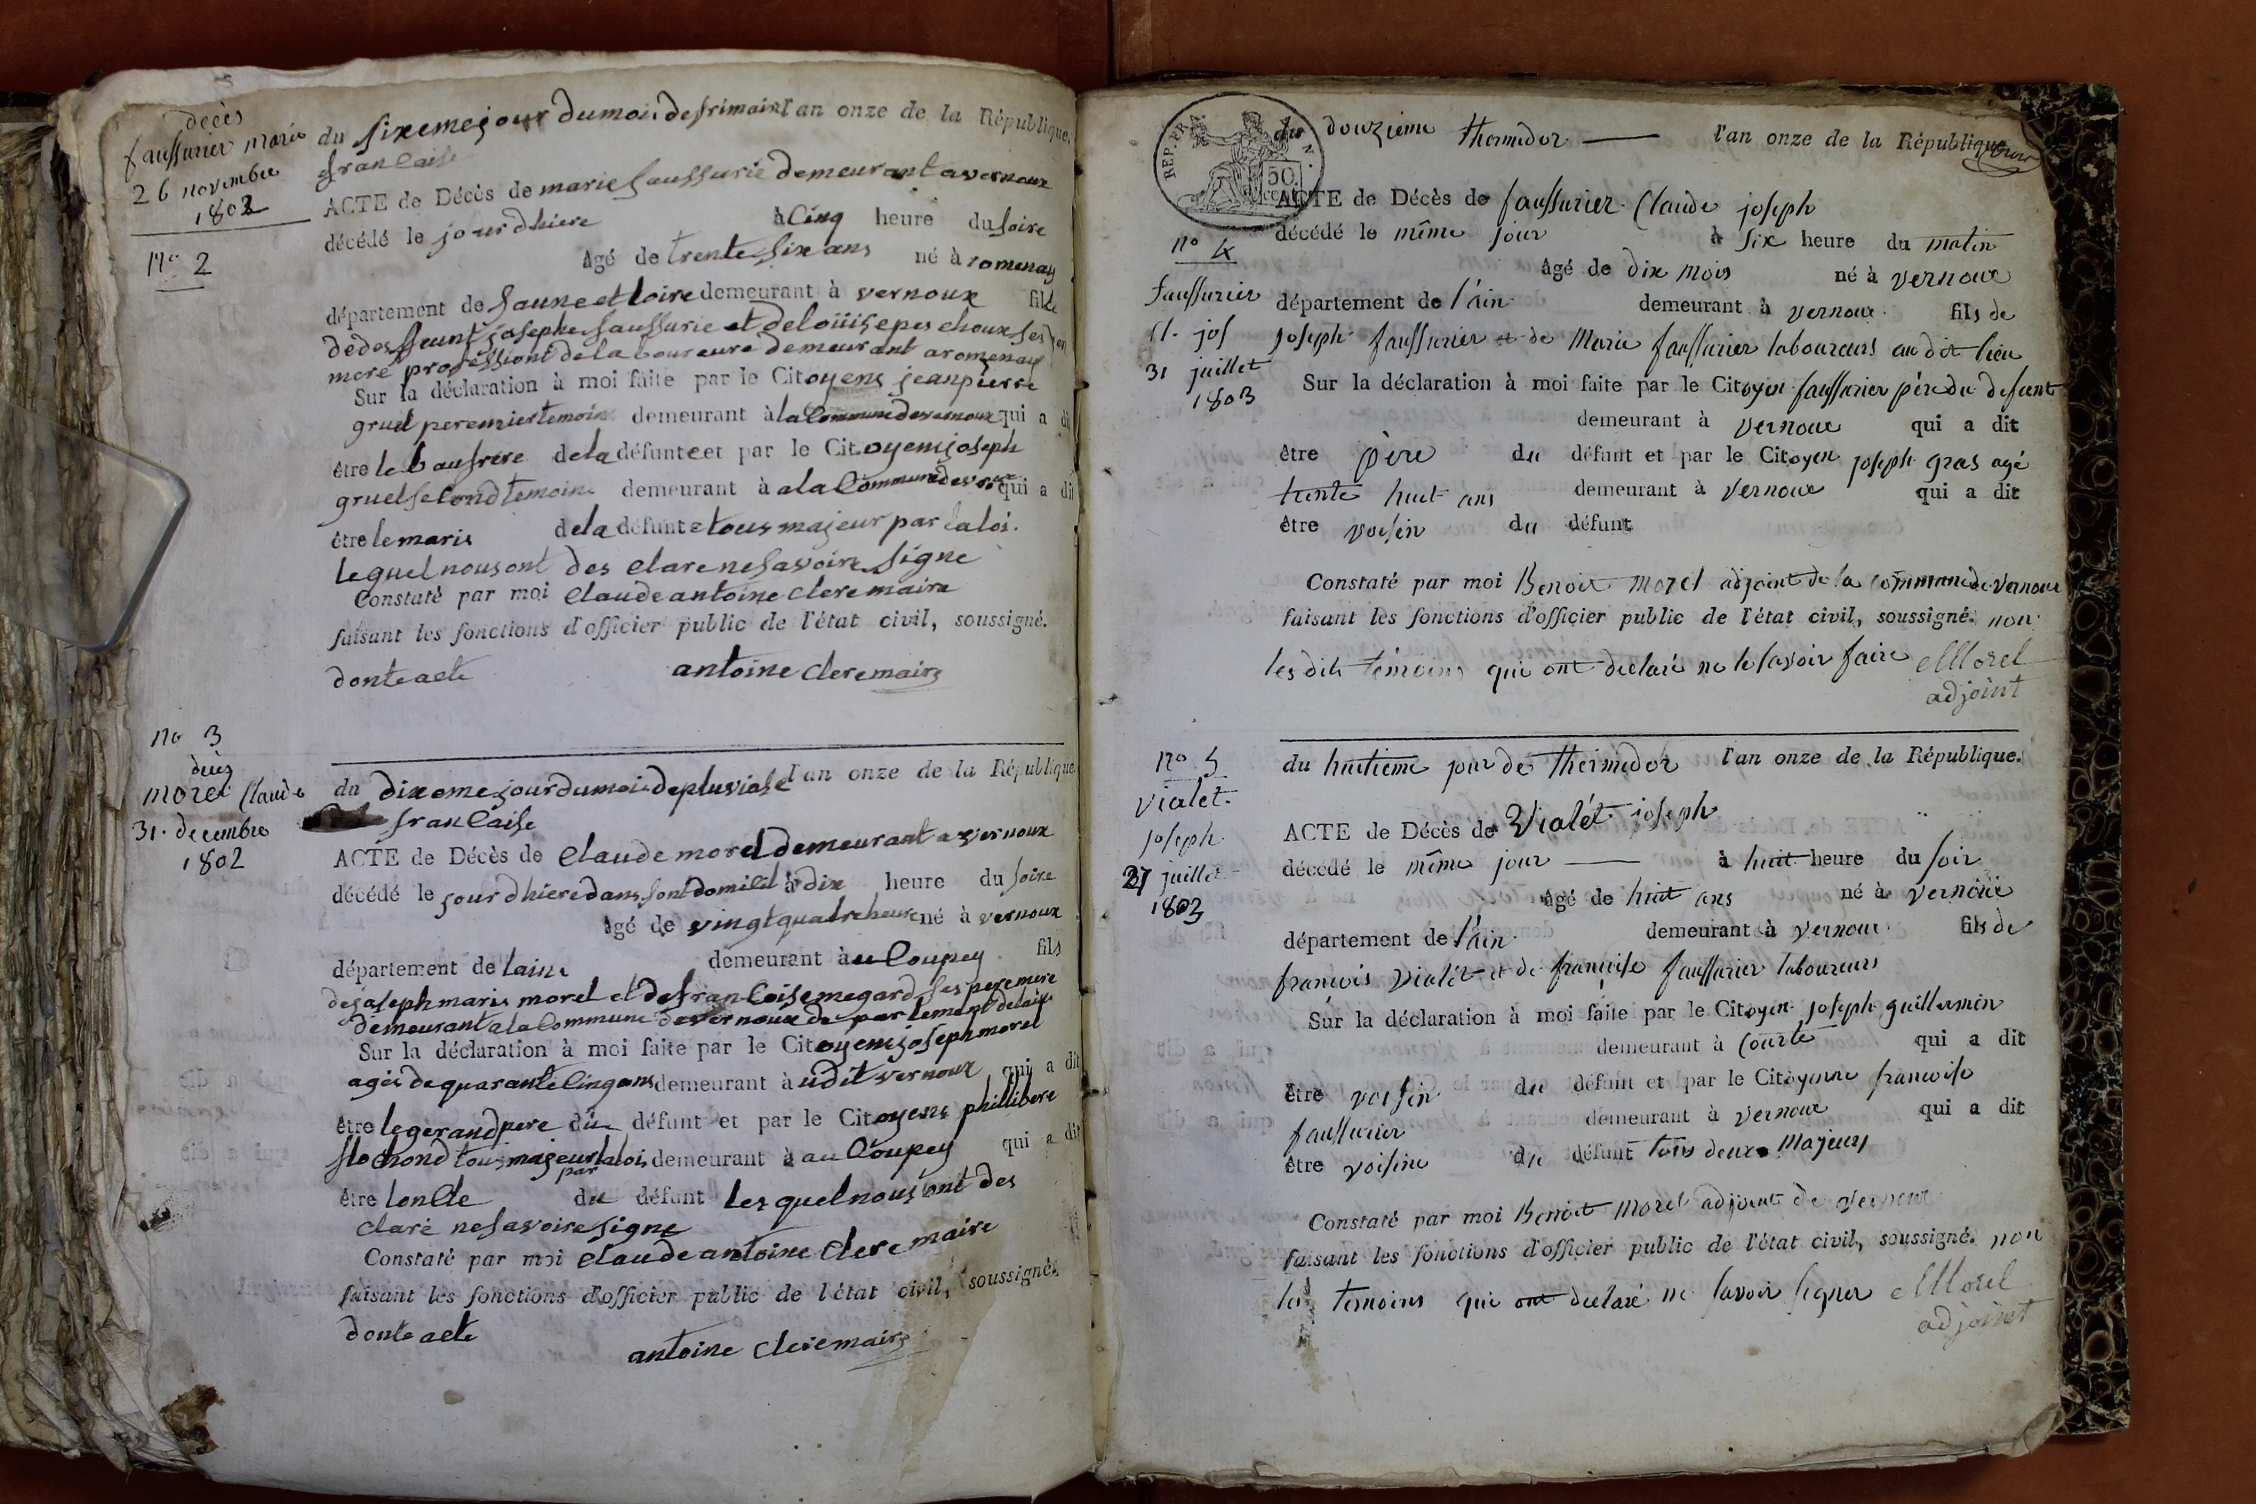 décès
faussurier marie
26 novembre
1802
No 2
du sixeme jour du moi de frimair l'an onze de la République.
francaise
ACTE de Décès de marie faussurie demeurant a vernoux
décédé le jour dhiere à Cinq heure du soire
âgé de trente six ans né à romenay
département de saune et loire demeurant à vernoux fils de
de deffeunt josephe faussurie et de loüise peschoux ses per
mere professiont de la boureure demeurant a romenay
Sur la déclaration à moi faite par le Citoyens jean pierre
gruel peremier temoin demeurant à la Commune de vernoux qui a dit
être le baufrere de la défunte et par le Citoyeni joseph
gruel second temoine demeurant à a la Commune de vernoux qui a dit
être le maris de la défunte tous majeur par la loi.
le quel nous ont des clare ne savoire signe
Constaté par moi Claude antoine Clere maire
faisant les fonctions d'officier public de l'état civil, soussigné.
donte acte antoine Clere maire
No 3
décès
morel Claude
31. decembre
1802
du dixeme jour du moi de pluviose l'an onze de la République
francaise
ACTE de Décès de Claude morel demeurant a vernoux
décédé le jour dhiere dans sont domicil à dix heure du soire
âgé de vingt quatre heure né à vernoux
département de laine demeurant à au Coupey fils
de joseph marie morel et de francoise megard ses pere mere
demeurant a la Commune de vernoux de partement de laine
Sur la déclaration à moi faite par le Citoyeni joseph morel
agés de quarante Cinq ans demeurant à udit vernoux qui a dit
être le gerand pere du défunt et par le Citoyens phillibere
flochond tous majeur par la lois demeurant à au Coupey qui a dit
être loncle du défunt les quel nous ont des
claré ne savoire signe
Constaté par moi Claude antoine Clere maire
faisant les fonctions d'officier public de l'état civil, soussigné.
donte acte
antoine Clere maire
REP. FRA.
50.
No 4
faussurier
Cl. jos
31 juillet
1803
du douzieme thermidor l'an onze de la République
ACTE de Décès de faussurier Claude joseph
décédé le même jour à six heure du matin
âgé de dix mois né à vernoux
département de l'ain demeurant à vernoux fils de
joseph faussurier et de Marie faussurier laboureurs au dit lieu
Sur la déclaration à moi faite par le Citoyen faussurier père du defunt
demeurant à vernoux qui a dit
être père du défunt et par le Citoyen joseph gras agé
trente huit ans demeurant à vernoux qui a dit
être voisin du défunt
Constaté par moi Benoit Morel adjoint de la commune de vernoux
faisant les fonctions d'officier public de l'état civil, soussigné. non
les dits témoins qui ont declaré ne le savoir faire Morel
adjoint
No 5
Vialet
joseph
27 juillet
1803
du huitieme jour de thermidor l'an onze de la République.
ACTE de Décès de Vialet joseph
décédé le même jour à huit heure du soir
âgé de huit ans né à vernoux
département de l'ain demeurant à vernoux fils de
françois Vialet et de françoise faussurier laboureurs
Sur la déclaration à moi faite par le Citoyen joseph guillermin
demeurant à Courte qui a dit
être voisin du défunt et par le Citoyenne francoise
faussurier demeurant à vernoux qui a dit
être voisine du défunt tous deux Majeurs
Constaté par moi Benoit Morel adjoint de vernoux
faisant les fonctions d'officier public de l'état civil, soussigné. non
les temoins qui ont declaré ne savoir signer Morel
adjoint